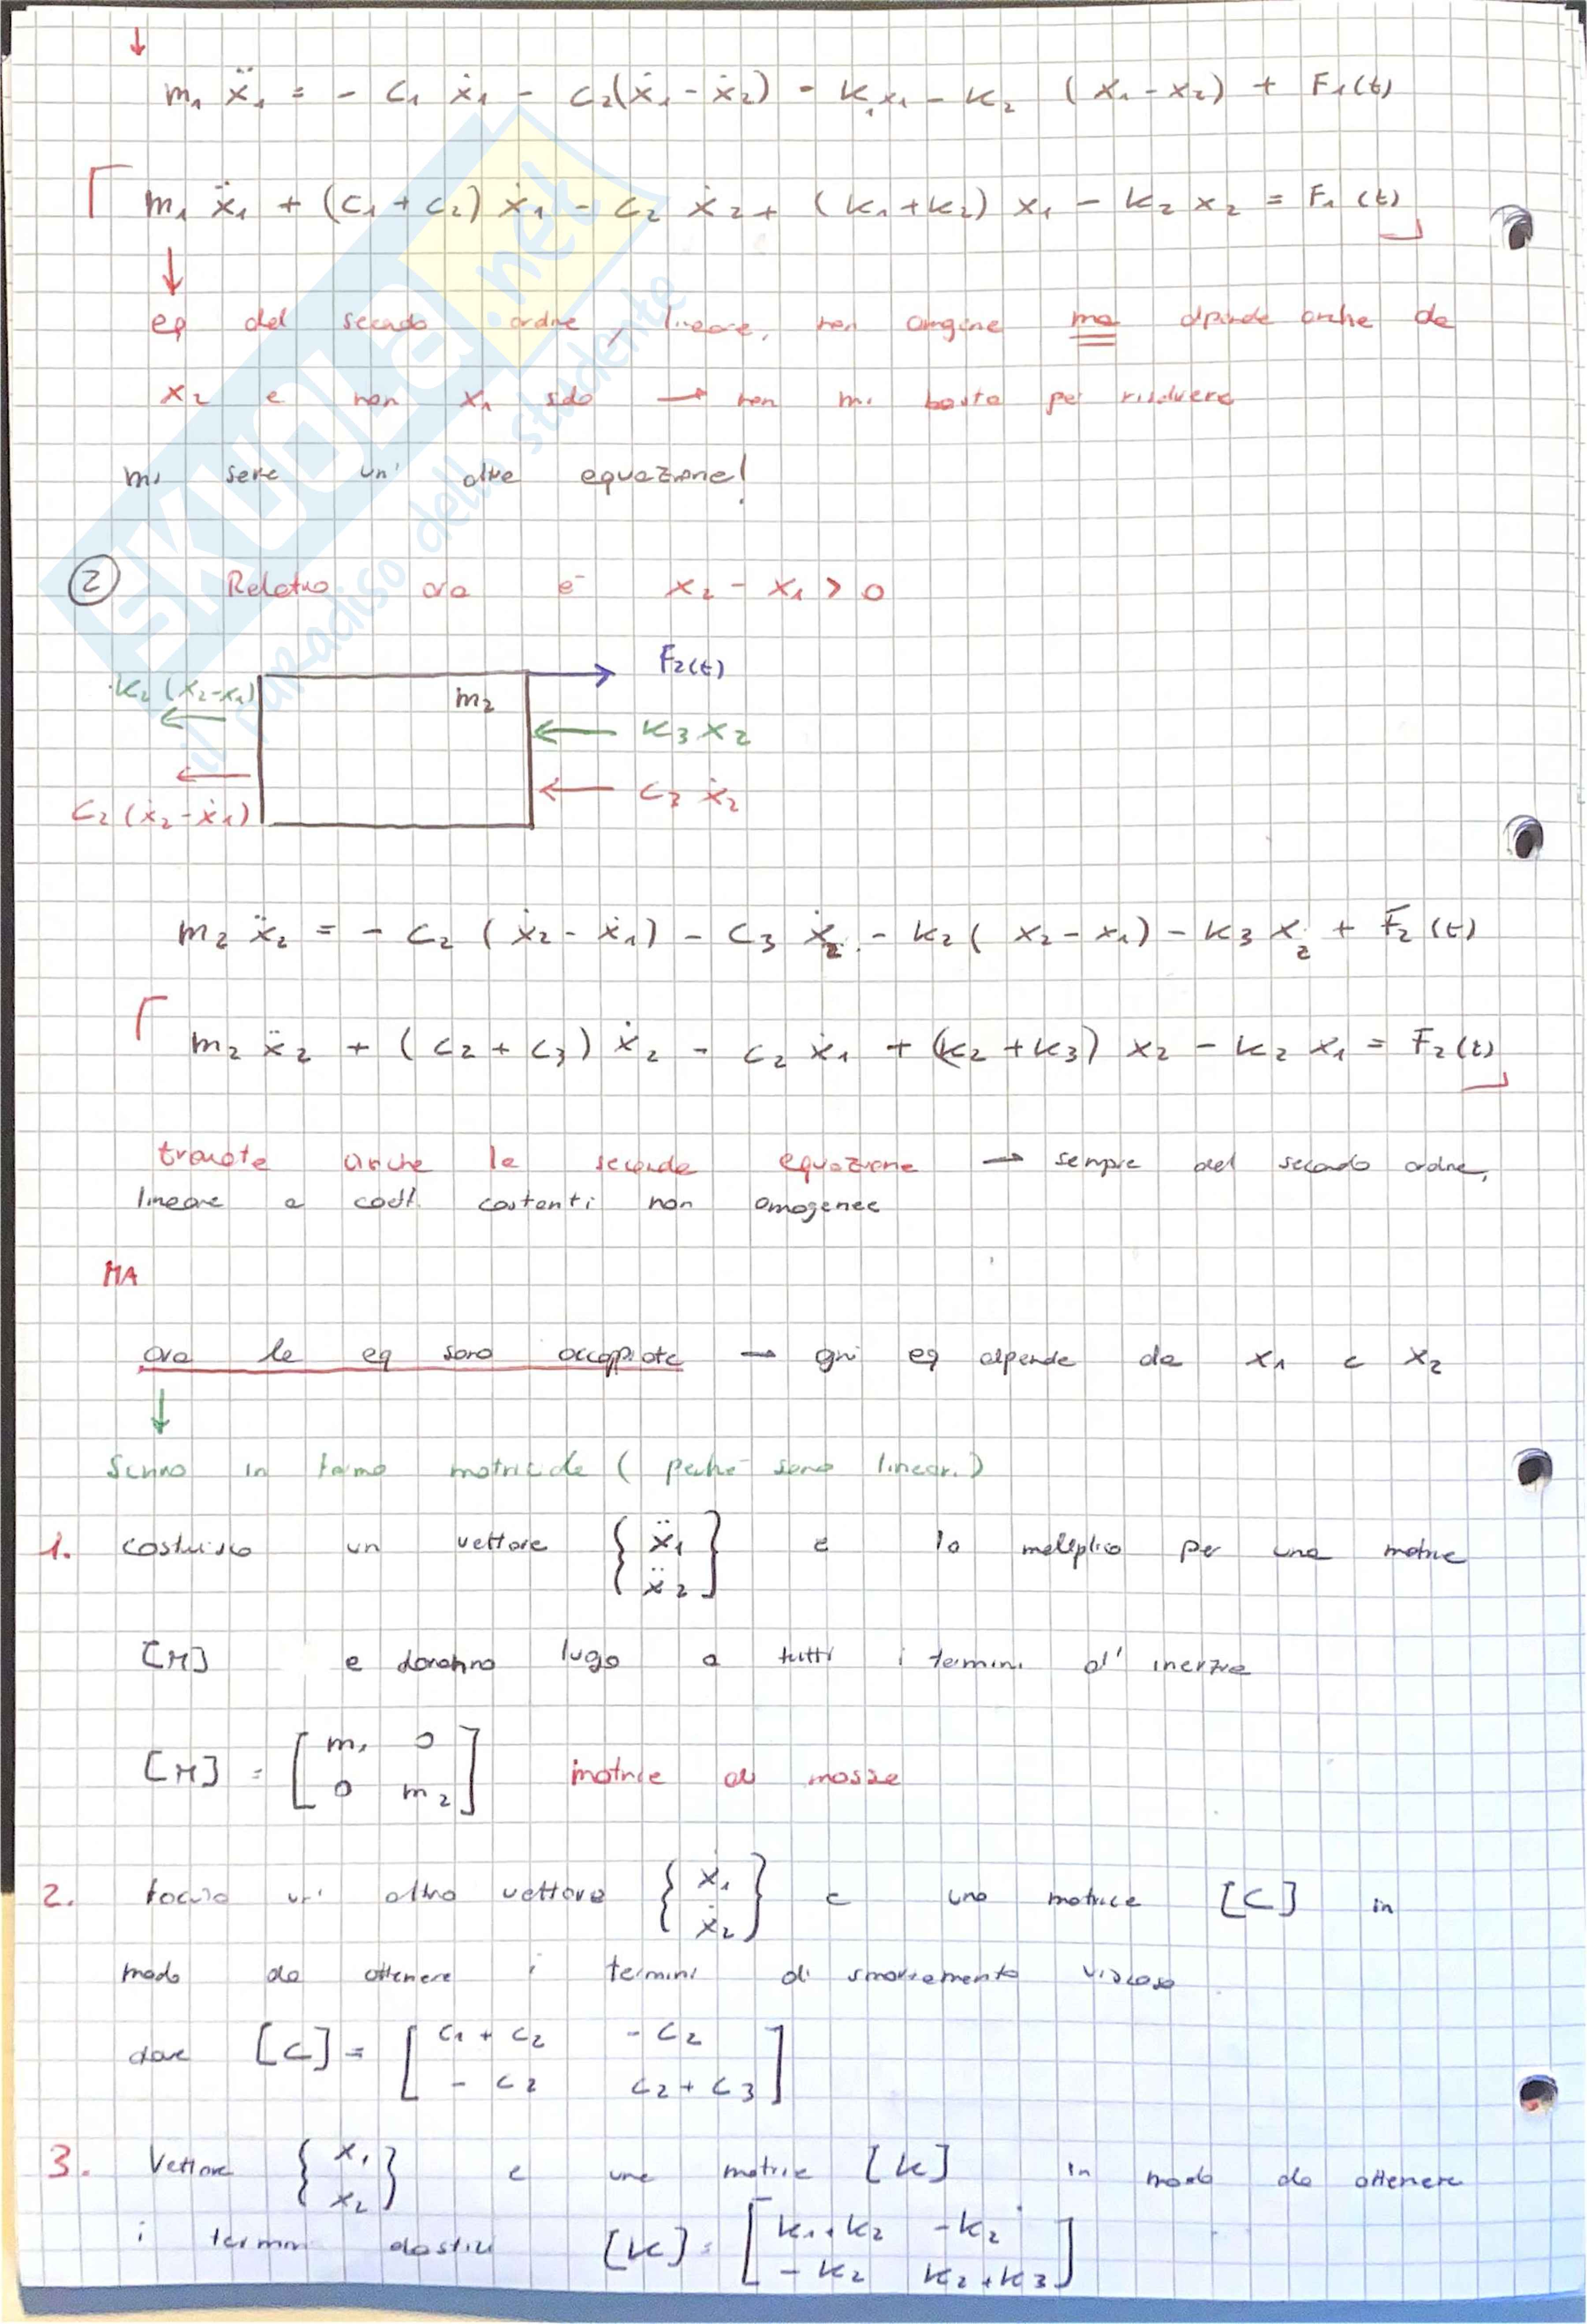 ↓
m₁ ẍ₁ = - c₁ ẋ₁ - c₂(ẋ₁-ẋ₂) - k₁x₁ - k₂ (x₁-x₂) + F₁(t)
m₁ ẍ₁ + (c₁+c₂) ẋ₁ - c₂ ẋ₂ + (k₁+k₂) x₁ - k₂ x₂ = F₁(t)
↓
eq del secondo ordine, lineare, non omogenea ma dipende anche da
x₂ e non x₁ solo → non mi basta per risolvere
mi serve un' altra equazione!
② Relativo ora è x₂ - x₁ > 0
F₂(t)
k₂(x₂-x₁) m₂
k₃ x₂
c₃ ẋ₂
c₂(ẋ₂-ẋ₁)
m₂ ẍ₂ = - c₂ (ẋ₂-ẋ₁) - c₃ ẋ₂ - k₂(x₂-x₁) - k₃ x₂ + F₂(t)
m₂ ẍ₂ + (c₂+c₃) ẋ₂ - c₂ ẋ₁ + (k₂+k₃) x₂ - k₂ x₁ = F₂(t)
trovata anche la seconda equazione → sempre del secondo ordine,
lineare a coeff. costanti non omogenee
MA
ora le eq sono accoppiate → ogni eq dipende da x₁ e x₂
↓
Scrivo in forma matriciale (perché sono lineari)
1. costruisco un vettore {ẍ₁ ẍ₂} e lo moltiplico per una matrice
[M] e daranno luogo a tutti i termini d' inerzia
[M] = [m₁ 0
0 m₂] matrice di massa
2. faccio un' altro vettore {ẋ₁ ẋ₂} e una matrice [C] in
modo da ottenere i termini di smorzamento viscoso
dove [C] = [c₁+c₂ -c₂
-c₂ c₂+c₃]
3. Vettore {x₁ x₂} e una matrice [K] in modo da ottenere
i termini elastici [K] = [k₁+k₂ -k₂
-k₂ k₂+k₃]
SKUOLA.net
il paradiso dello studente